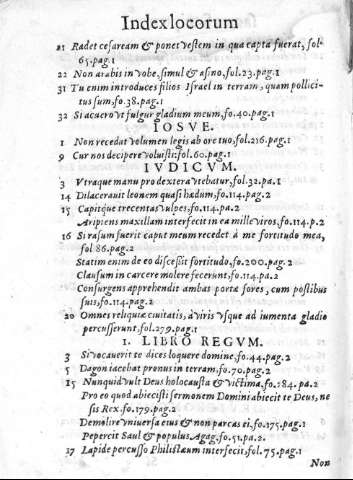 Index locorum
21 Radet cesaream & ponet vestem in qua capta fuerat, fol.
65.pag.1
22 Non arabis in vobe, simul & asino, fol.23.pag.1
31 Tu enim introduces filios Israel in terram, quam pollici-
tus sum, fo.38.pag.1
32 Si acuero vt fulgur gladium meum, fo.40.pag.1
IOSVE.
1 Non recedat volumen legis ab ore tuo, fol.216.pag.1
9 Cur nos decipere voluisti: fol.60.pag.1
IVDICVM.
3 Vtraque manu pro dextera vtebatur, fol.32.pa.1
14 Dilacerauit leonem quasi hædum, fo.114.pag.2
15 Capitque trecentas vulpes, fo.114.pa.2
Aripiens maxillam interfecit in ea mille viros, fo.114.p.2
16 Si rasum fuerit caput meum recedet à me fortitudo mea,
fol 86.pag.2
Statim enim de eo discessit fortitudo, fo.200.pag.2
Clausum in carcere molere fecerunt, fo.114.pa.2
Consurgens apprehendit ambas portæ fores, cum postibus
suis, fo.114.pag.2
20 Omnes reliquiæ ciuitatis, à viris vsque ad iumenta gladio
percusserunt, fol.279.pag.1
1. LIBRO REGVM.
3 Si vocauerit te dices loquere domine, fo.44.pag.2
5 Dagon iacebat pronus in terram, fo.70.pag.2
15 Nunquid vult Deus holocausta & victima, fo.184.pa.2
Pro eo quod abiecisti sermonem Domini abiecit te Deus, ne
sis Rex. fo.179.pag.2
Demolire vniuersa eius & non parcas ei, fo.175.pag.1
Pepercit Saul & populus Agag, fo.51.pa.2.
17 Lapide percusso Philistæum interfecit, fol.75.pag.1
Non